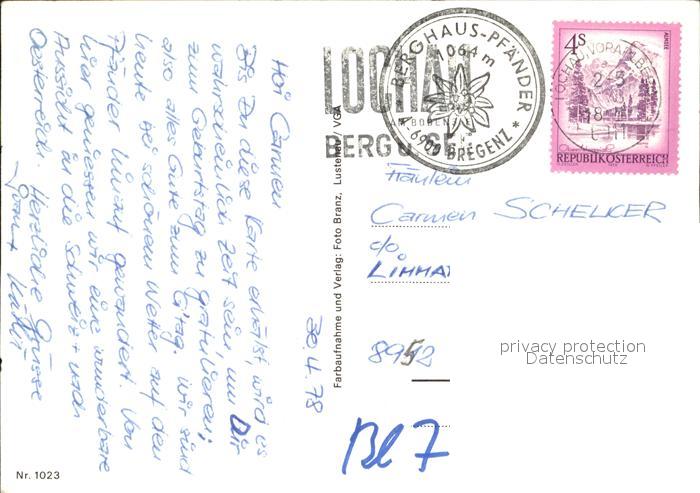 Hoi Carmen
Bis Du diese Karte erhälst, wird es
wahrscheinlich Zeit sein, um Dir
zum Geburtstag zu gratulieren;
also alles Gute zum G'tag. Wir sind
heute bei schönem Wetter auf den
Pfänder hinauf gewandert. Von
hier geniessen wir eine wunderbare
Aussicht in die Schweiz + nach
Oesterreich. Herzliche Grüsse
30.4.78
Nr. 1023
Farbaufnahme und Verlag: Foto Branz, Lustenau / VGA
LOCHAU
AM BODENSEE
BERG U
BERGHAUS-PFÄNDER
1064 m
* 6900 BREGENZ *
4S
ALMSEE
LOCHAU, VORARLBG
REPUBLIK ÖSTERREICH
Fräulein
Carmen SCHELKER
c/o
LIMMAT
8952
Bl 7
privacy protection
Datenschutz